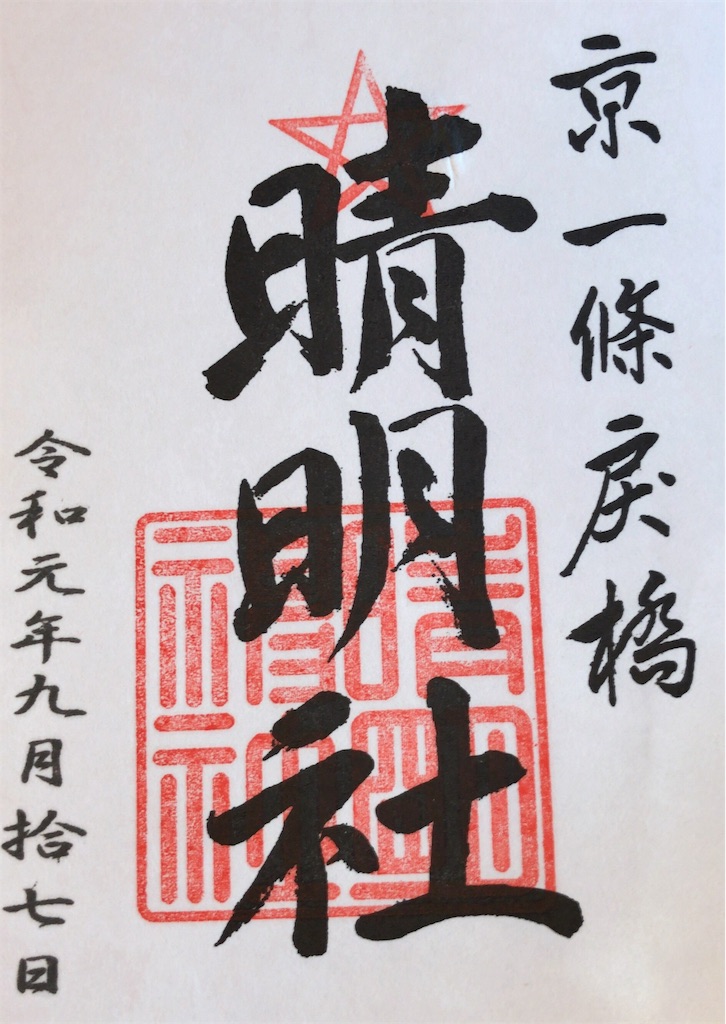 京一條戻橋
晴明社
令和元年九月拾七日